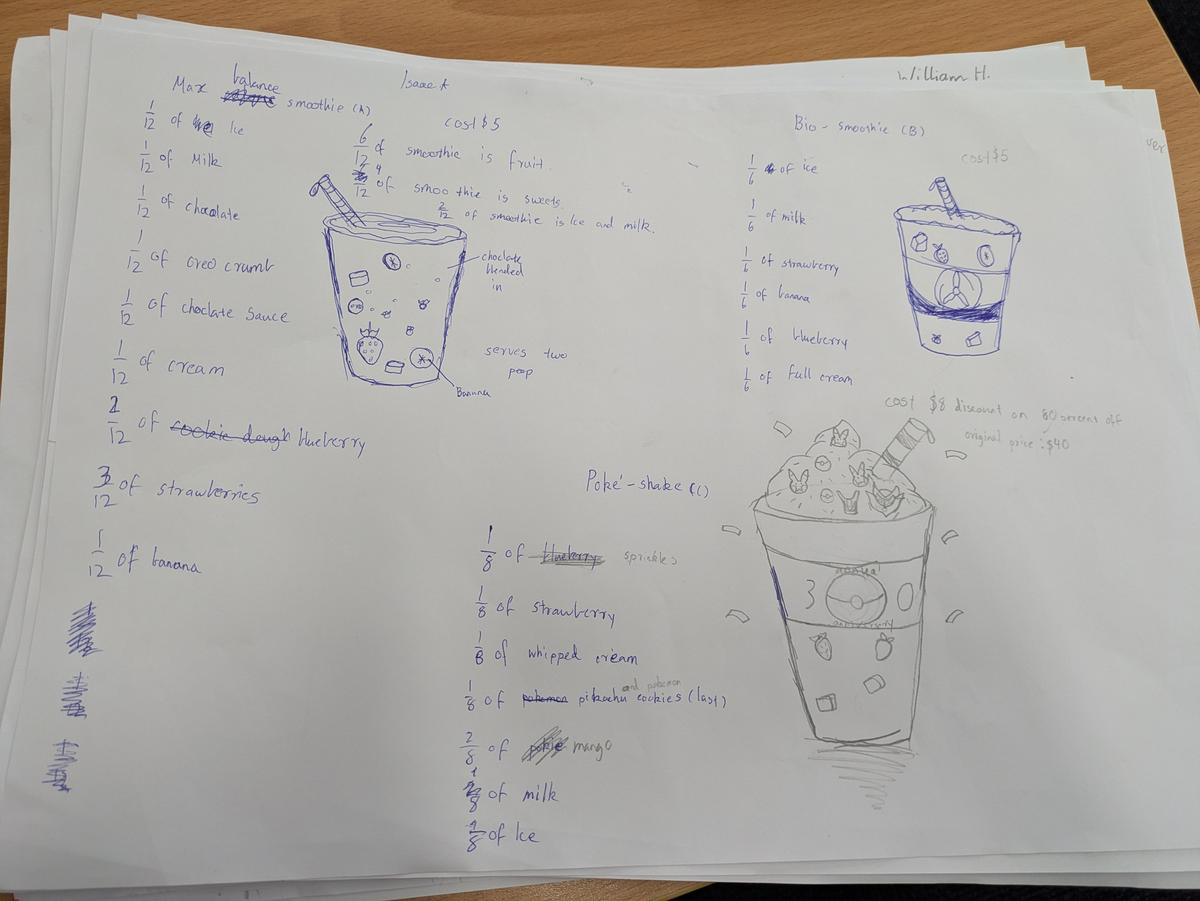 William H.
Isaac A
Max balance smoothie (A)
1/12 of Ice
1/12 of Milk
1/12 of chocolate
1/12 of oreo crumb
1/12 of choclate sauce
1/12 of cream
2/12 of cookie dough blueberry
3/12 of strawberries
1/12 of banana
cost $5
6/12 of smoothie is fruit.
4/12 of smoothie is sweets.
2/12 of smoothie is Ice and milk.
choclate
blended
in
serves two
peop
Banana
Bio - smoothie (B)
cost $5
1/6 of ice
1/6 of milk
1/6 of strawberry
1/6 of banana
1/6 of blueberry
1/6 of full cream
Poké - shake (C)
1/8 of blueberry sprinkles
1/8 of strawberry
1/8 of whipped cream
1/8 of pokemon pikachu and pokemon cookies (last)
2/8 of mango
1/8 of milk
1/8 of Ice
cost $8 discount on 80 percent off
original price: $40
3 0
anniversary
ver